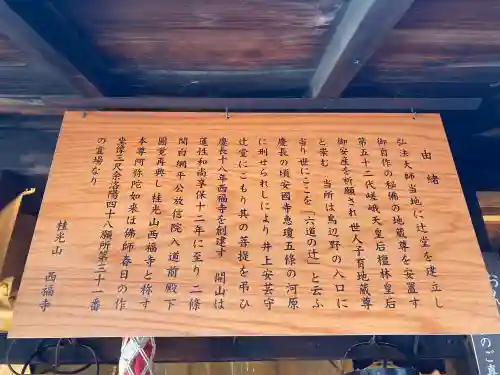 由緒
弘法大師当地に辻堂を建立し
御自作の秘佛の地蔵尊を安置す
第五十二代嵯峨天皇后檀林皇后
御安産を祈願され世人子育地蔵尊
と崇む 当所は鳥辺野の入口に
当り世にここを「六道の辻」と云ふ
慶長の頃安国寺恵瓊五條の河原
に刑せられしにより井上安芸守
辻堂にこもり其の菩提を弔ひ
慶長十八年西福寺を創建す 開山は
蓮性和尚享保十二年に至り 二條
関白綱平公放信院入道前殿下
圖覚再興し桂光山西福寺と称す
本尊阿弥陀如来は佛師春日の作
坐漆三尺余洛陽四十八願所第三十一番
の霊場なり
桂光山 西福寺